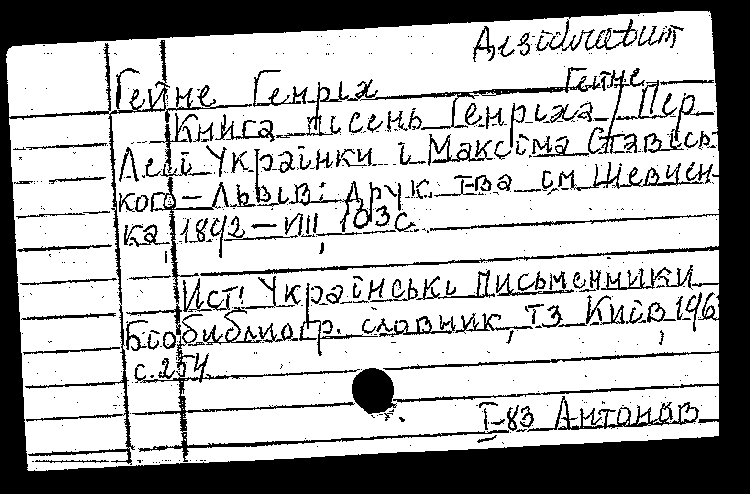 Дезидерат
Гейне Генріх
Гейне
Книга пісень Генріха / Пер
Лесі Українки і Максіма Ставісь
кого – Львів: Друк. т-ва ім Шевчен-
ка, 1892 – VIII, 103 с.
Ист: Українські письменники
Біобибліогр. словник, т3 Київ, 196
с. 254
I-83 Антонов